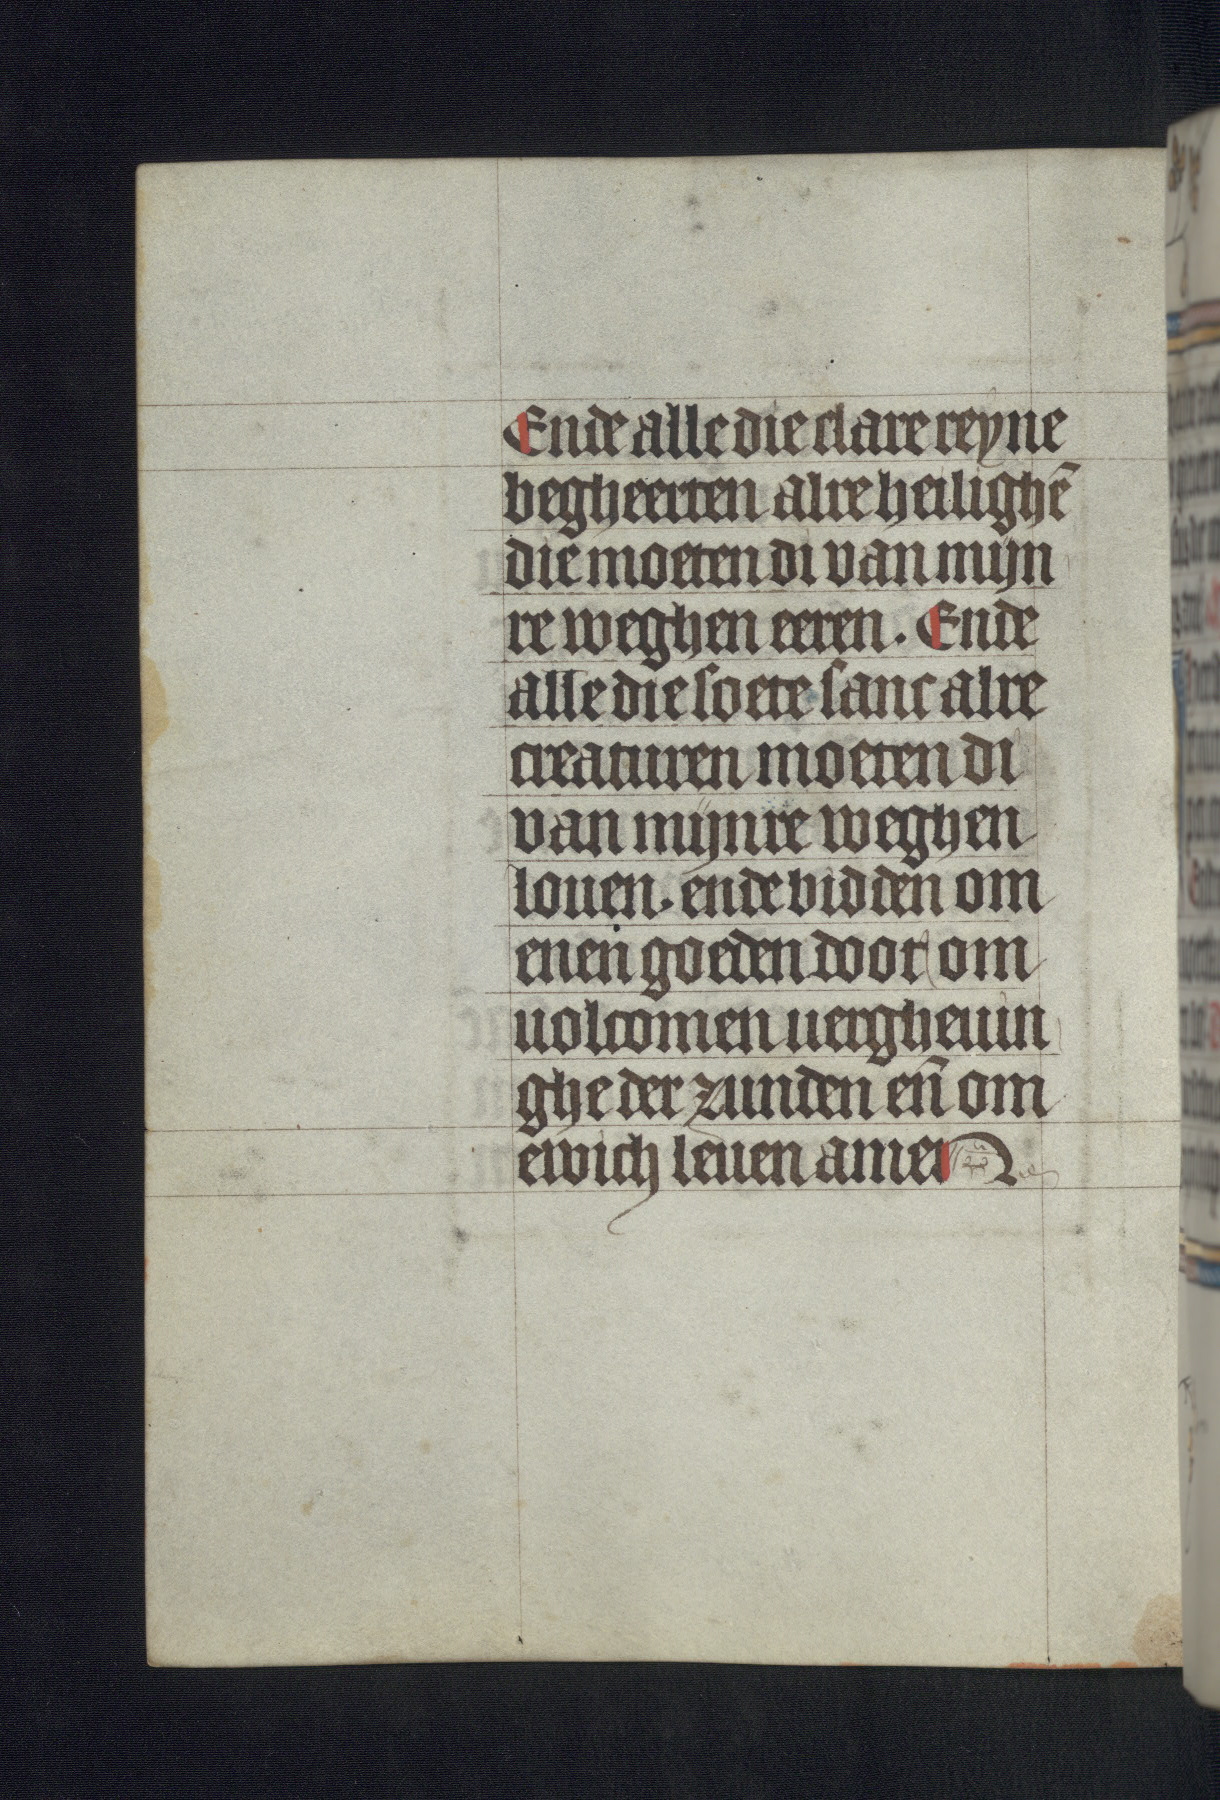 Ende alle die clare reyne
begheerten alre heilighē
die moeten di van mijn
re weghen eeren. Ende
alle die soete sanc alre
creaturen moeten di
van mijnre weghen
louen. ende bidden om
enen goeden doot om
uolcomen uergheuin
ghe der zunden en̄ om
ewich leuen amen